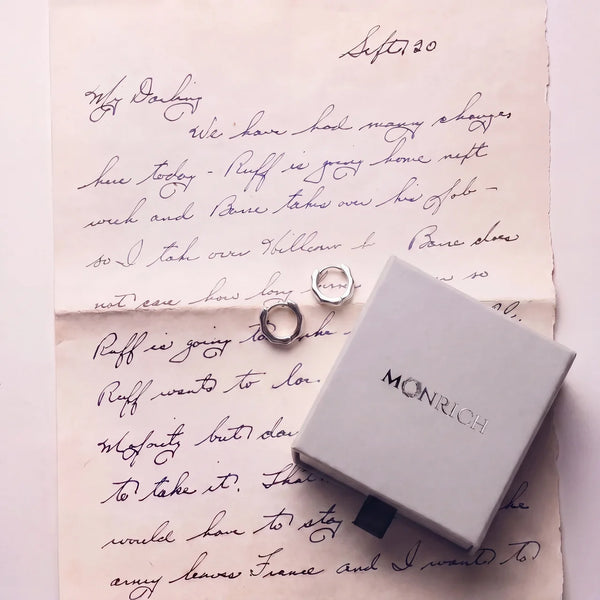 Sept 20
My Darling
We have had many changes
here today - Ruff is going home next
week and Bane takes over his job -
so I take over Bane does
not care how long so
Ruff is going to
Ruff wants to
Majority but
to take it. That
he
would have to stay
army leaves France and I want to
MONRICH